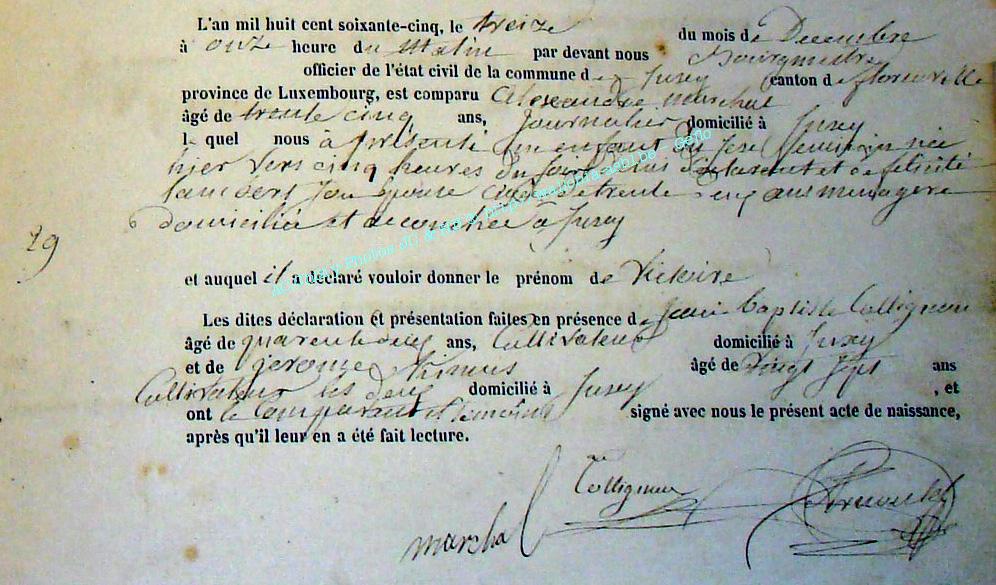 L'an mil huit cent soixante-cinq, le treize du mois de Decembre
à onze heure du matin par devant nous Bourgmestre
officier de l'état civil de la commune de Jusey canton de florenville
province de Luxembourg, est comparu Alexandre marchal
âgé de trente cinq ans, Journalier domicilié à Jusey
lequel nous a présenté un enfant du sexe feminin née
hier vers cinq heures du soir de lui déclarant et de félicité
Lambert son épouse agée de trente ans menagere
domiciliée et accouchée à Jusey
29
et auquel il a déclaré vouloir donner le prénom de Victoire
Les dites déclaration et présentation faites en présence de Jean Baptiste Collignon
âgé de quarente deux ans, Cultivateur domicilié à Jusey
et de gerome âgé de vingt sept ans
Cultivateur les deux domicilié à Jusey , et
ont le Comparant et temoins signé avec nous le présent acte de naissance,
après qu'il leur en a été fait lecture.
Collignon
marchal